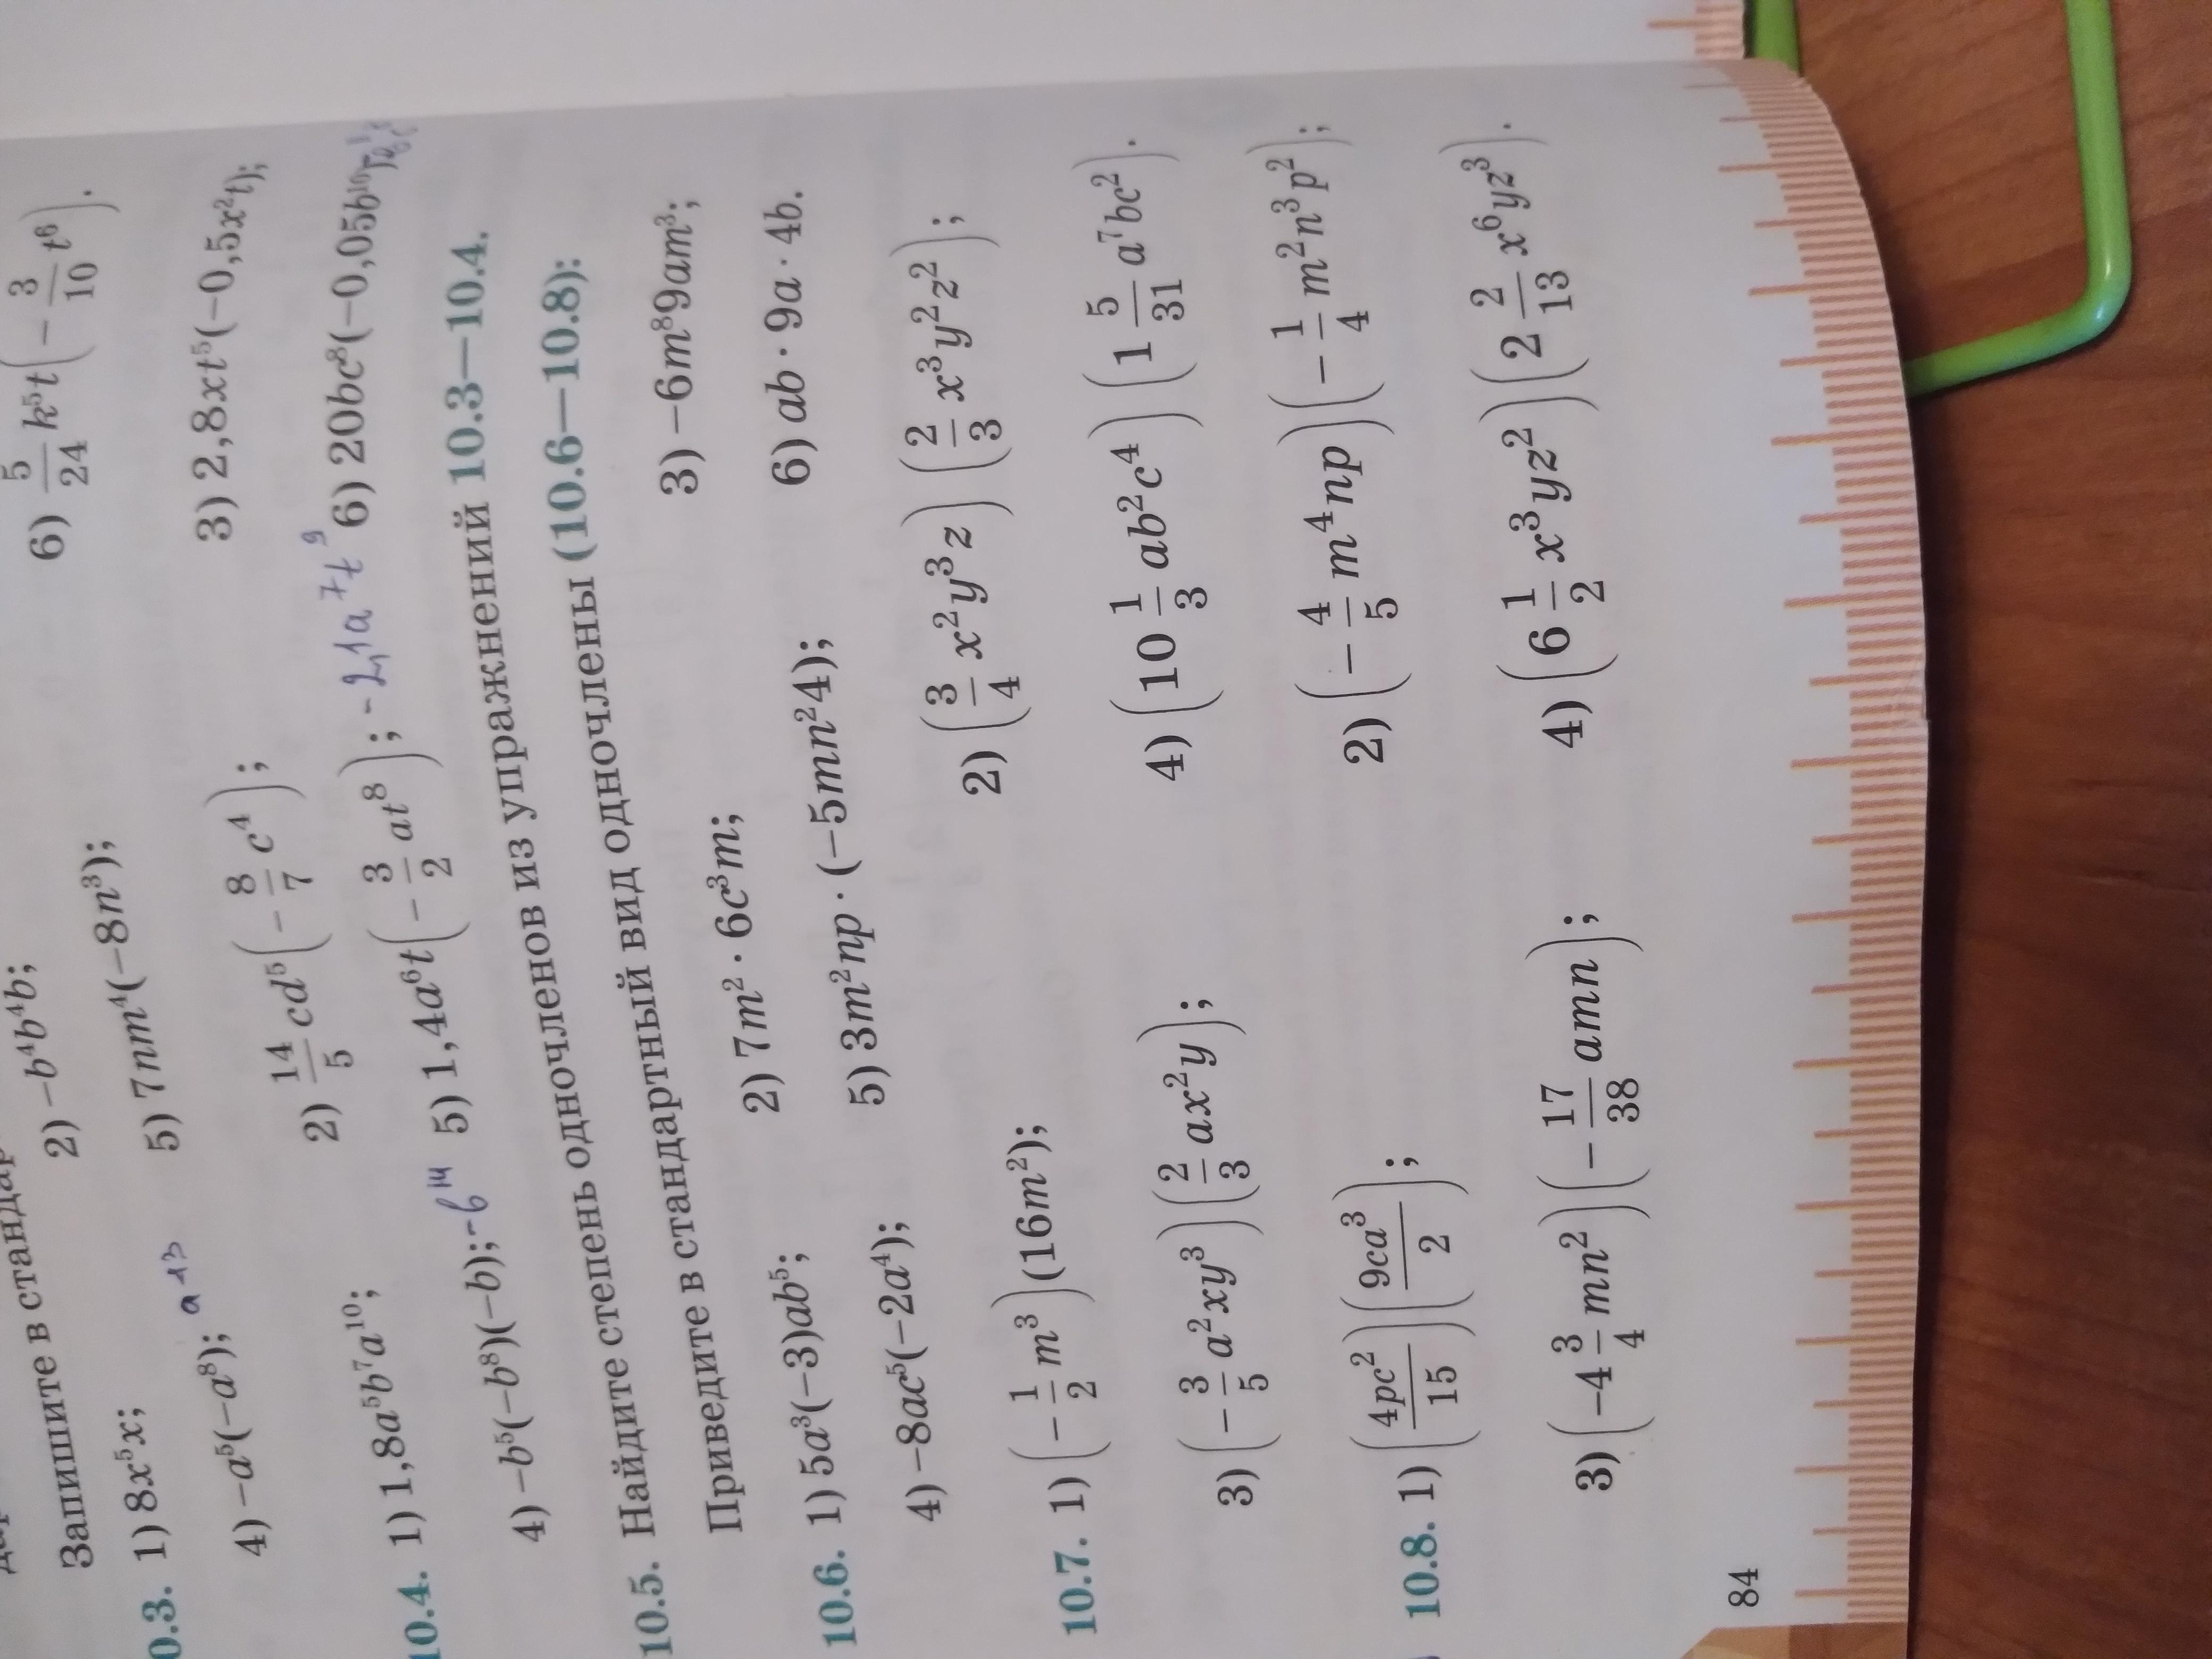 Запишите в стандар
0.3. 1) 8x⁵x; 2) −b⁴b⁴b;
4) −a⁵(−a⁸); a¹³ 5) 7nm⁴(−8n³); 6) 5/24 k⁵t(−3/10 t⁶).
10.4. 1) 1,8a⁵b⁷a¹⁰; 2) 14/5 cd⁵(−8/7 c⁴); 3) 2,8xt⁵(−0,5x²t);
4) −b⁵(−b⁸)(−b); −b¹⁴ 5) 1,4a⁶t(−3/2 at⁸); −2,1a⁷t⁹ 6) 20bc⁸(−0,05b¹⁰
10.5. Найдите степень одночленов из упражнений 10.3—10.4.
Приведите в стандартный вид одночлены (10.6—10.8):
10.6. 1) 5a³(−3)ab⁵; 2) 7m² · 6c³m; 3) −6m⁸9am³;
4) −8ac⁵(−2a⁴); 5) 3m²np · (−5mn²4); 6) ab · 9a · 4b.
10.7. 1) (−1/2 m³)(16m²); 2) (3/4 x²y³z)(2/3 x³y²z²);
3) (−3/5 a²xy³)(2/3 ax²y); 4) (10 1/3 ab²c⁴)(1 5/31 a⁷bc²).
10.8. 1) (4pc²/15)(9ca³/2); 2) (−4/5 m⁴np)(−1/4 m²n³p²);
3) (−4 3/4 mn²)(−17/38 amn); 4) (6 1/2 x³yz²)(2 2/13 x⁶yz³).
84